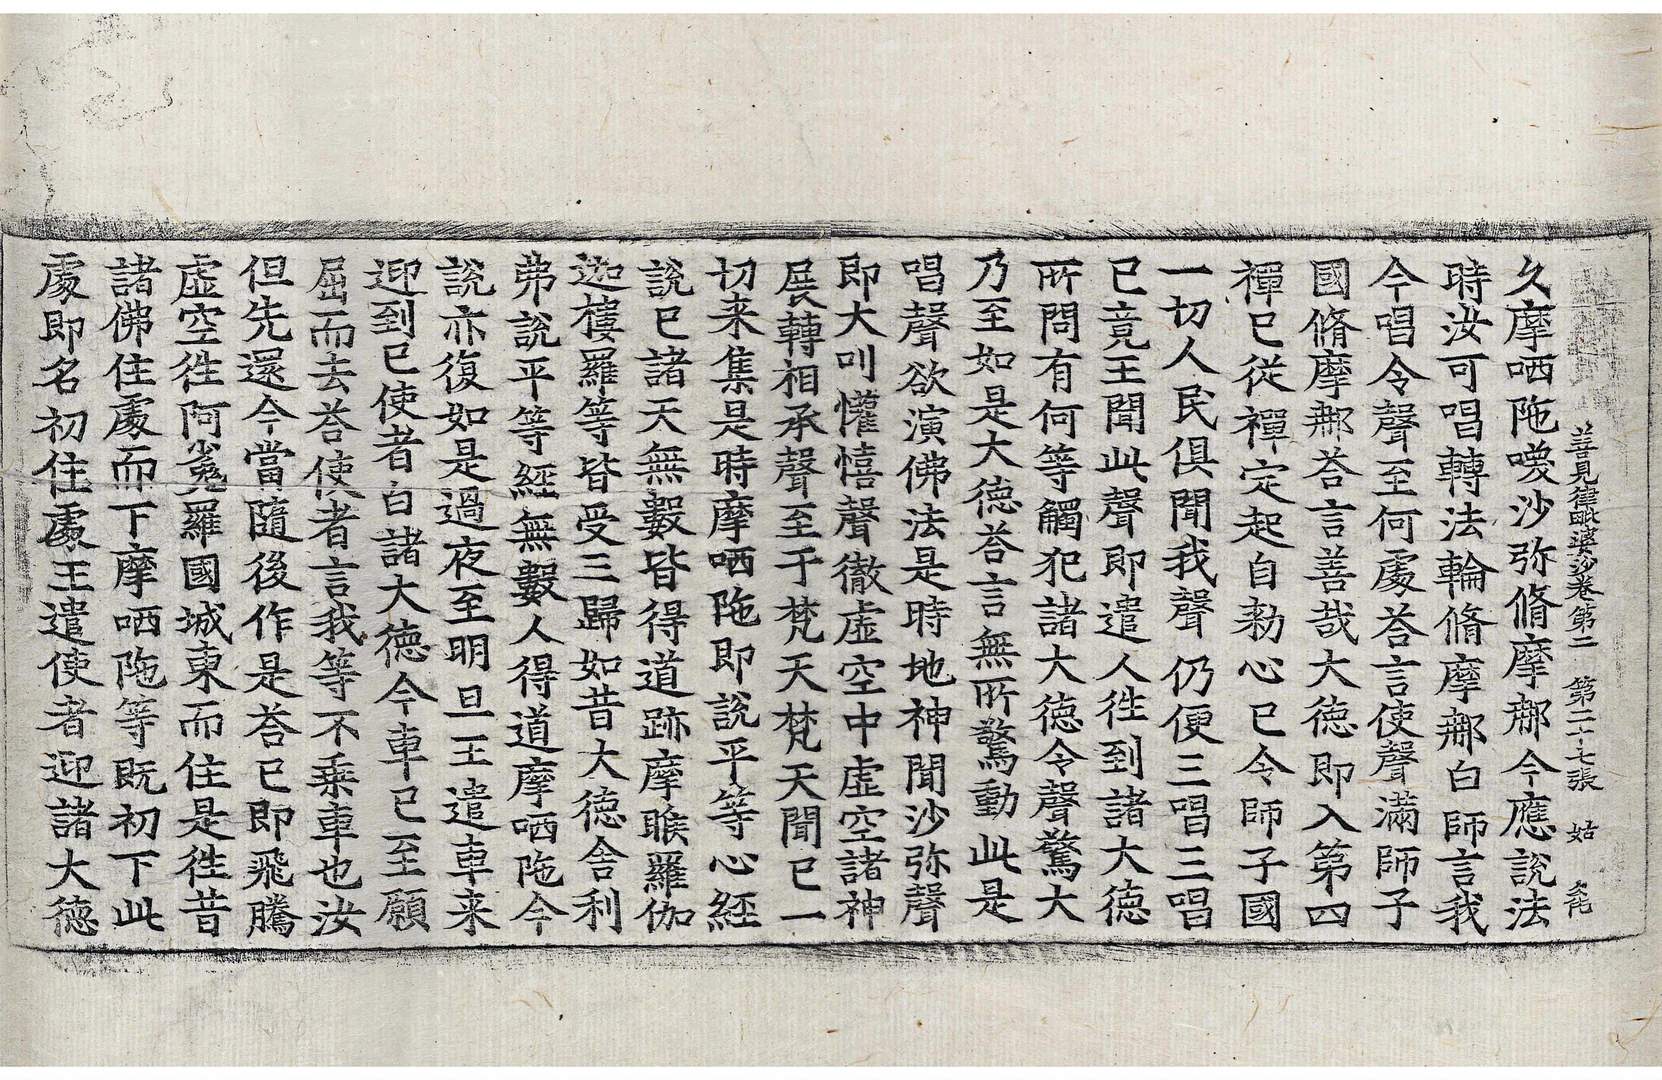 善見律毗婆沙卷第二 第二十七張 姑
久摩哂陁喚沙弥脩摩那今應說法
時汝可唱轉法輪脩摩那白師言我
今唱令聲至何處荅言使聲滿師子
國脩摩那荅言善哉大德即入第四
禪已從禪定起自勑心已令師子國
一切人民俱聞我聲仍便三唱三唱
已竟王聞此聲即遣人徃到諸大德
所問有何等觸犯諸大德令聲驚大
乃至如是大德荅言無所驚動此是
唱聲欲演佛法是時地神聞沙弥聲
即大叫懽憘聲徹虛空中虛空諸神
展轉相承聲至于梵天梵天聞已一
切来集是時摩哂陁即說平等心経
說已諸天無數皆得道跡摩睺羅伽
迦樓羅等皆受三歸如昔大德舍利
弗說平等経無數人得道摩哂陁今
說亦復如是過夜至明旦王遣車来
迎到已使者白諸大德今車已至願
屈而去荅使者言我等不乗車也汝
但先還今當隨後作是荅已即飛騰
虛空徃阿㝹羅國城東而住是徃昔
諸佛住處而下摩哂陁等既初下此
處即名初住處王遣使者迎諸大德